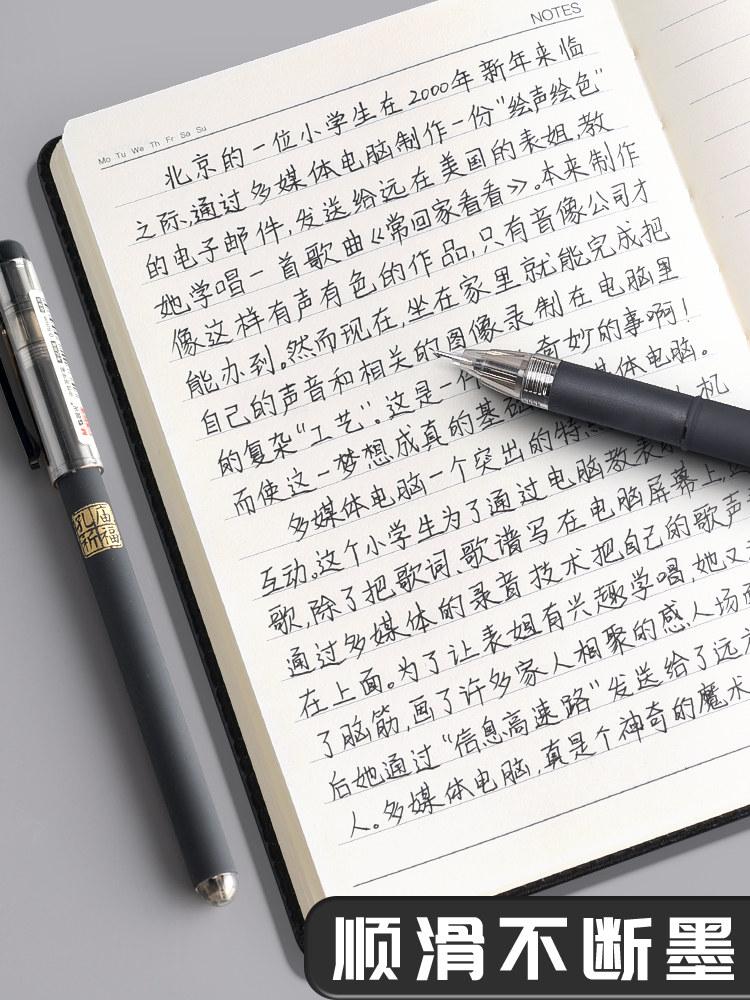 NOTES
Mo Tu We Th Fr Sa Su
北京的一位小学生在2000年新年来临
之际,通过多媒体电脑制作一份“绘声绘色”
的电子邮件,发送给远在美国的表姐,教
她学唱一首歌曲《常回家看看》。本来制作
像这样有声有色的作品,只有音像公司才
能办到。然而现在,坐在家里就能完成把
自己的声音和相关的图像录制在电脑里
的复杂“工艺”。这是一件 奇妙的事啊!
而使这一梦想成真的基础 体电脑。
多媒体电脑一个突出的特 机
互动。这个小学生为了通过电脑教表
歌,除了把歌词、歌谱写在电脑屏幕上,
通过多媒体的录音技术把自己的歌声
在上面。为了让表姐有兴趣学唱,她又
了脑筋,画了许多家人相聚的感人场面
后她通过“信息高速路”发送给了远方
人。多媒体电脑,真是个神奇的魔术
孔庙
祈福
顺滑不断墨